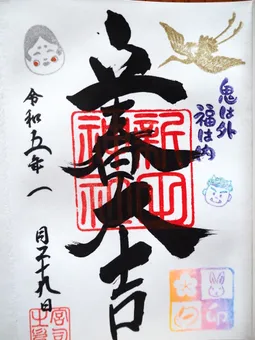 鬼は外
福は内
立春大吉
新田
神社
令和五年 一月二十九日
卯